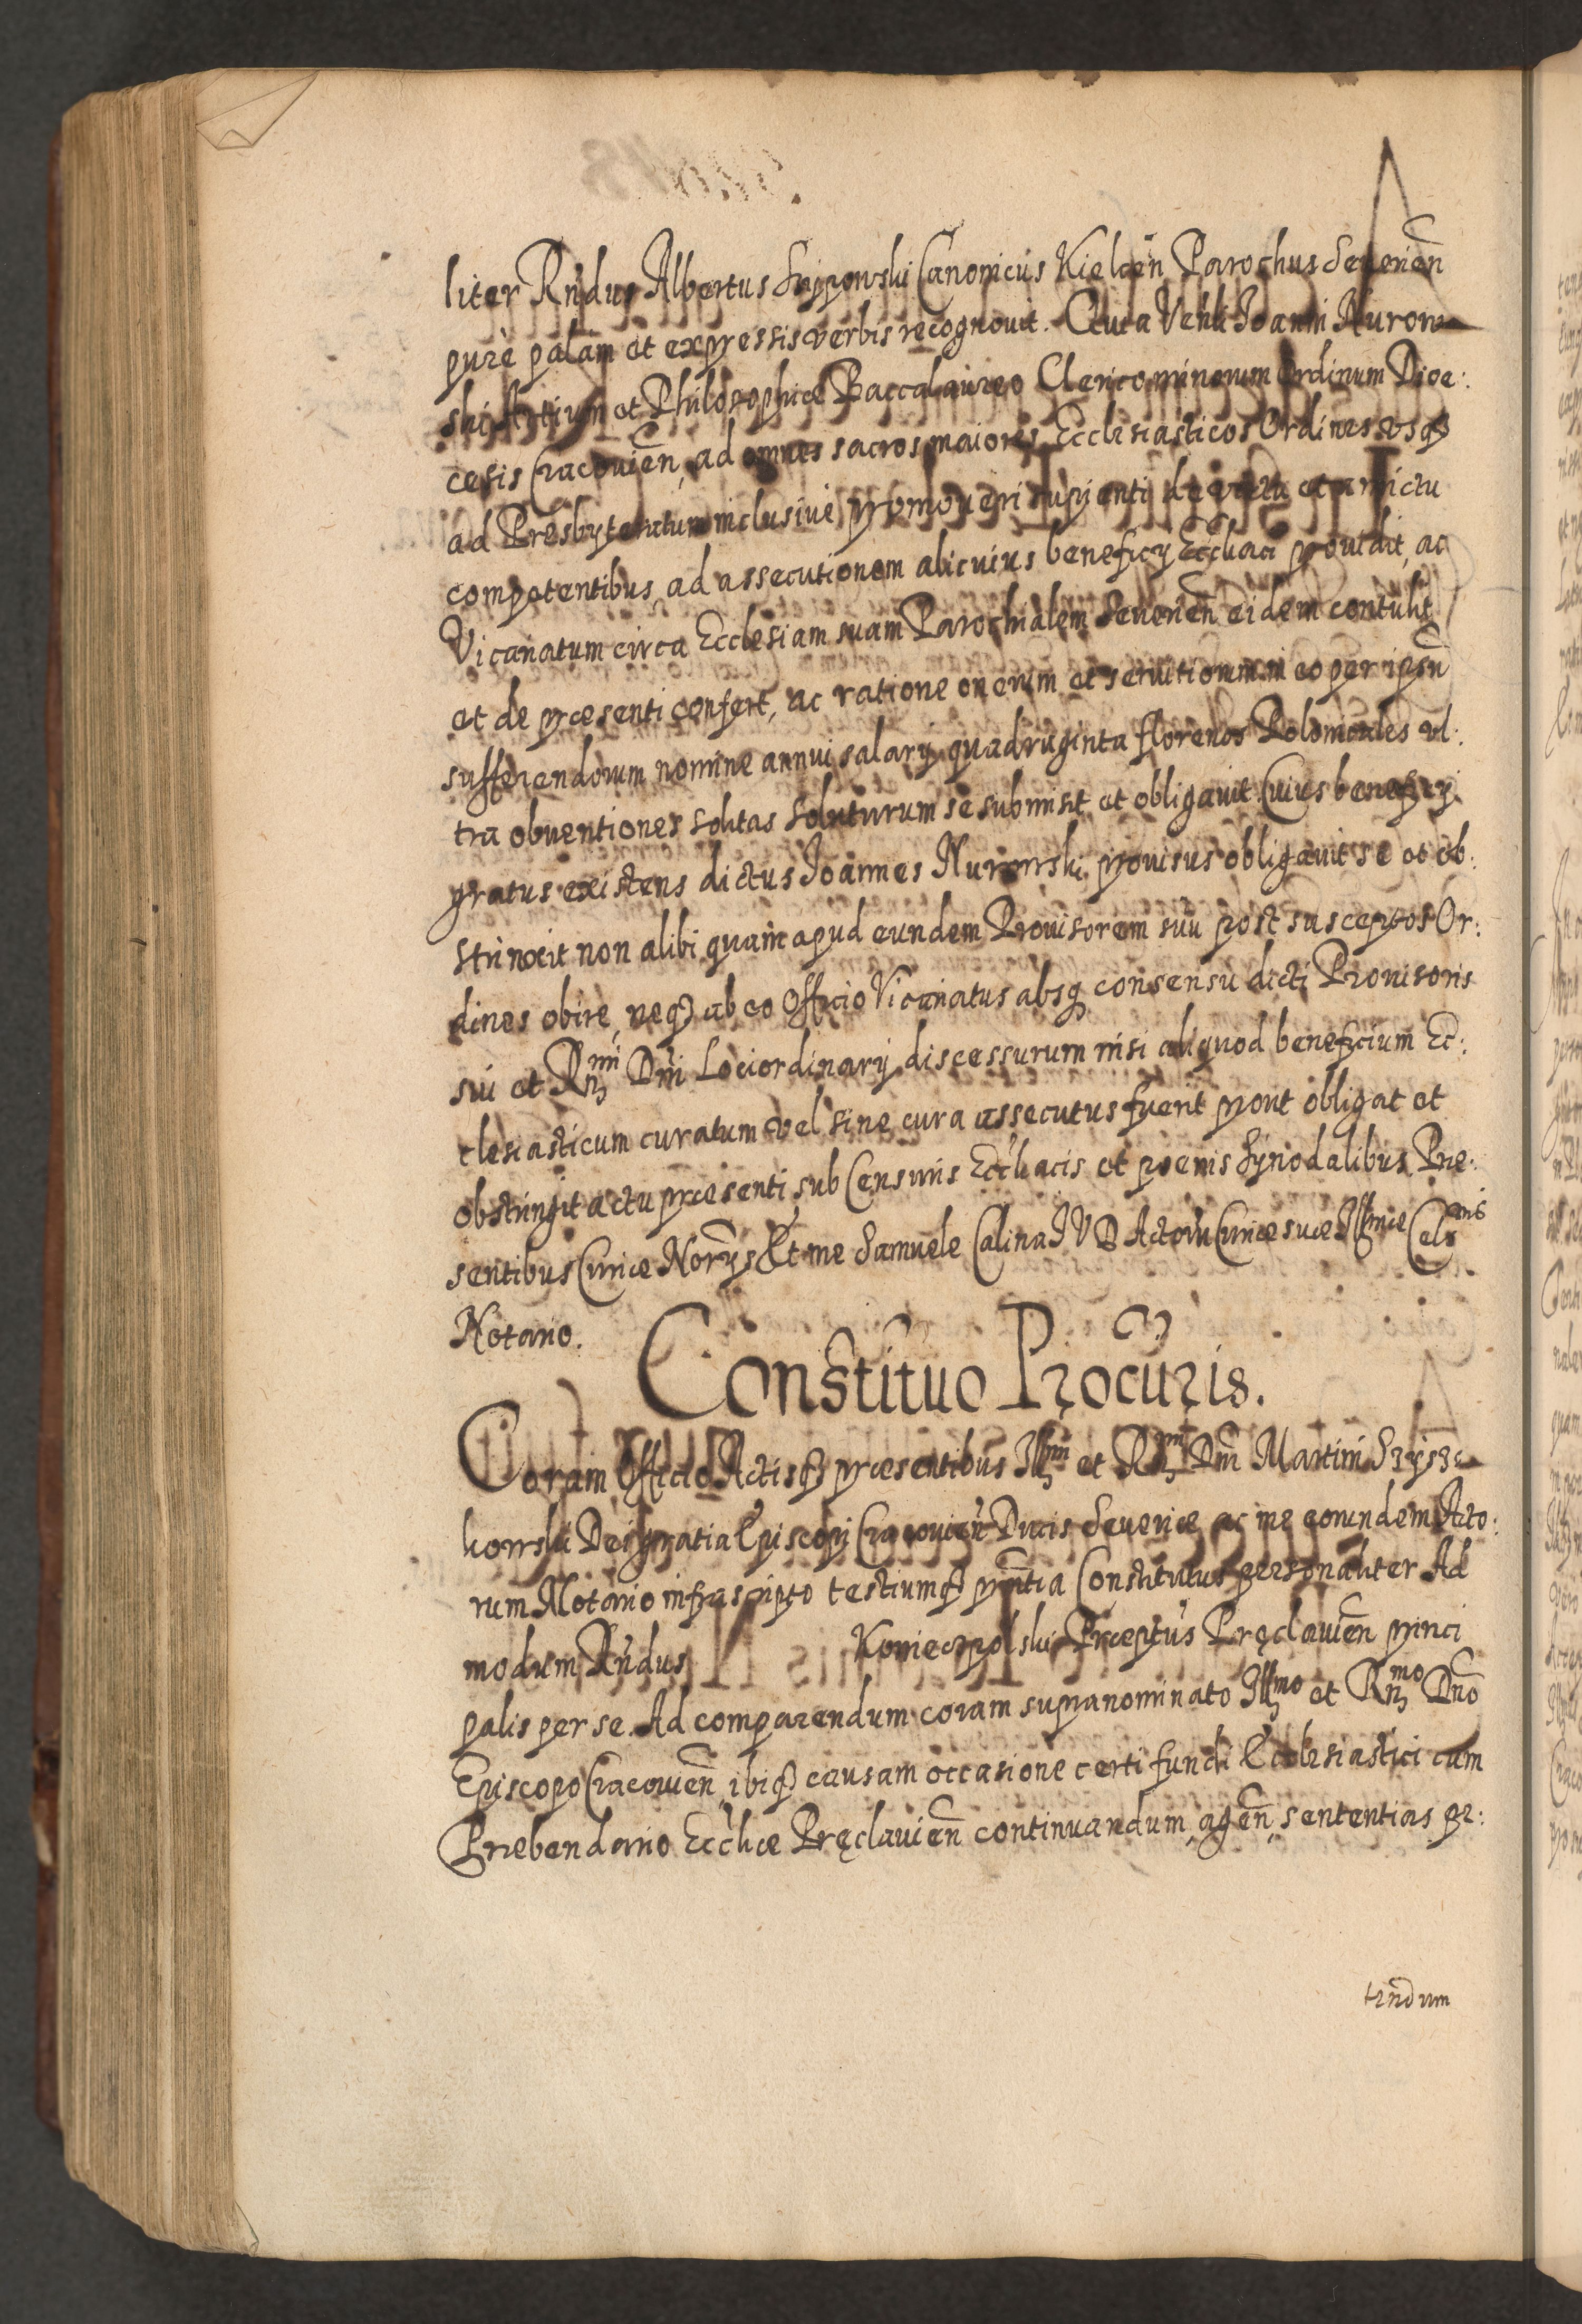 liter Rndus Albertus Lipowski Canonicus Kielcen̄ Parochus Severien̄
purè palam et expressis verbis recognovit. Quia Venli Joanni Nurow
ski Artium et Philosophiæ Baccalaureo Clerico minorum Ordinum Dioe:
cesis Cracovien̄, ad omnes sacros maiores Ecclesiasticos Ordines usq3
ad Presbyteratum inclusive promoveri cupienti de victu et amictu
competentibus ad assecutionem alicuius beneficij Ecchaci providit, ac
Vicariatum circa Ecclesiam suam Parochialem Severien̄ eidem contulit
et de præsenti confert, ac ratione onerum et servitiorum in eo per ipsū
sufferendorum nomine annui salarij quadraginta florenos Polonicales ul:
tra obventiones solitas soluturum se submisit et obligavit. Cuius beneficij
gratus existens dictus Joannes Nurowski provisus obligavit se et ob:
strinxit non alibi quam apud eundem Provisorem suū post susceptos Or:
dines obire, neq3 ab eo Officio Vicariatus absq3 consensu dicti Provisoris
sui et Rmi Dni Loci ordinarij discessurum nisi aliquod beneficium Ec:
clesiasticum curatum vel sine cura assecutus fuerit prout obligat et
obstringit actu præsenti sub Censuris Ecchacis et poenis Synodalibus Præ:
sentibus Curiæ Norijs Et me Samuele Calina JUD Actorū Curiæ suæ Illmæ Celsnis
Notario.
Constituo Procuris.
Coram Officio Actisq3 præsentibus Illmi et Rmi Dni Martini Szysz
kowski Dei gratia Episcopi Cracovien̄ Ducis Severiæ ac me eorundem Acto:
rum Notario infrascripto testiumq3 pn̄tia Constitutus personaliter Ad
modum Rndus Koniecpolski Præptus Pręclavien̄ princi
palis per se. Ad comparendum coram supranominato Illmo et Rmo Dno
Episcopo Cracovien̄ ibiq3 causam occasione certi fundi Ecclesiastici cum
Præbendario Ecclhæ Pręclavien̄ continuandum, agen̄, sententias pe:
tendum